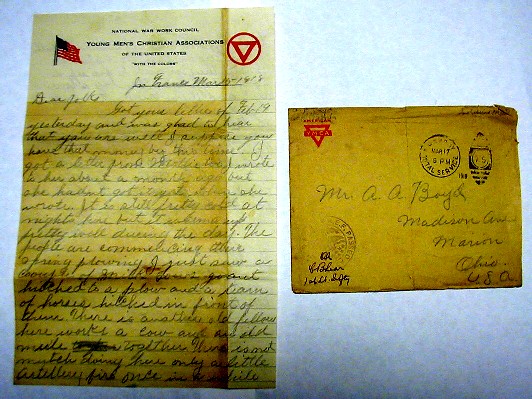 NATIONAL WAR WORK COUNCIL
YOUNG MEN'S CHRISTIAN ASSOCIATIONS
OF THE UNITED STATES
"WITH THE COLORS"
In France Mar
Dear folks
Got your letter of Feb 19
yesterday and was glad to hear
that you are well I suppose you
have that money by this time I
got a letter from I wrote
to her about a month but
she hadn't got it when she
wrote. It is still pretty cold at
night here but it up
pretty well during the day. The
people are commencing their
spring plowing I just saw a
couple of
hitched to a plow and a team
of horses hitched in front of
them There is another old fellow
here works a cow and an old
mule together There is not
mutch doing here only a little
artillery fire once in a while
AMERICAN
YMCA
MAR 17
6 PM
POSTAL SERVICE
191
U.S.
Mr. A. A. Boyd
Madison Ave
Marion
Ohio.
U.S.A
OK
1st Lt. Infty